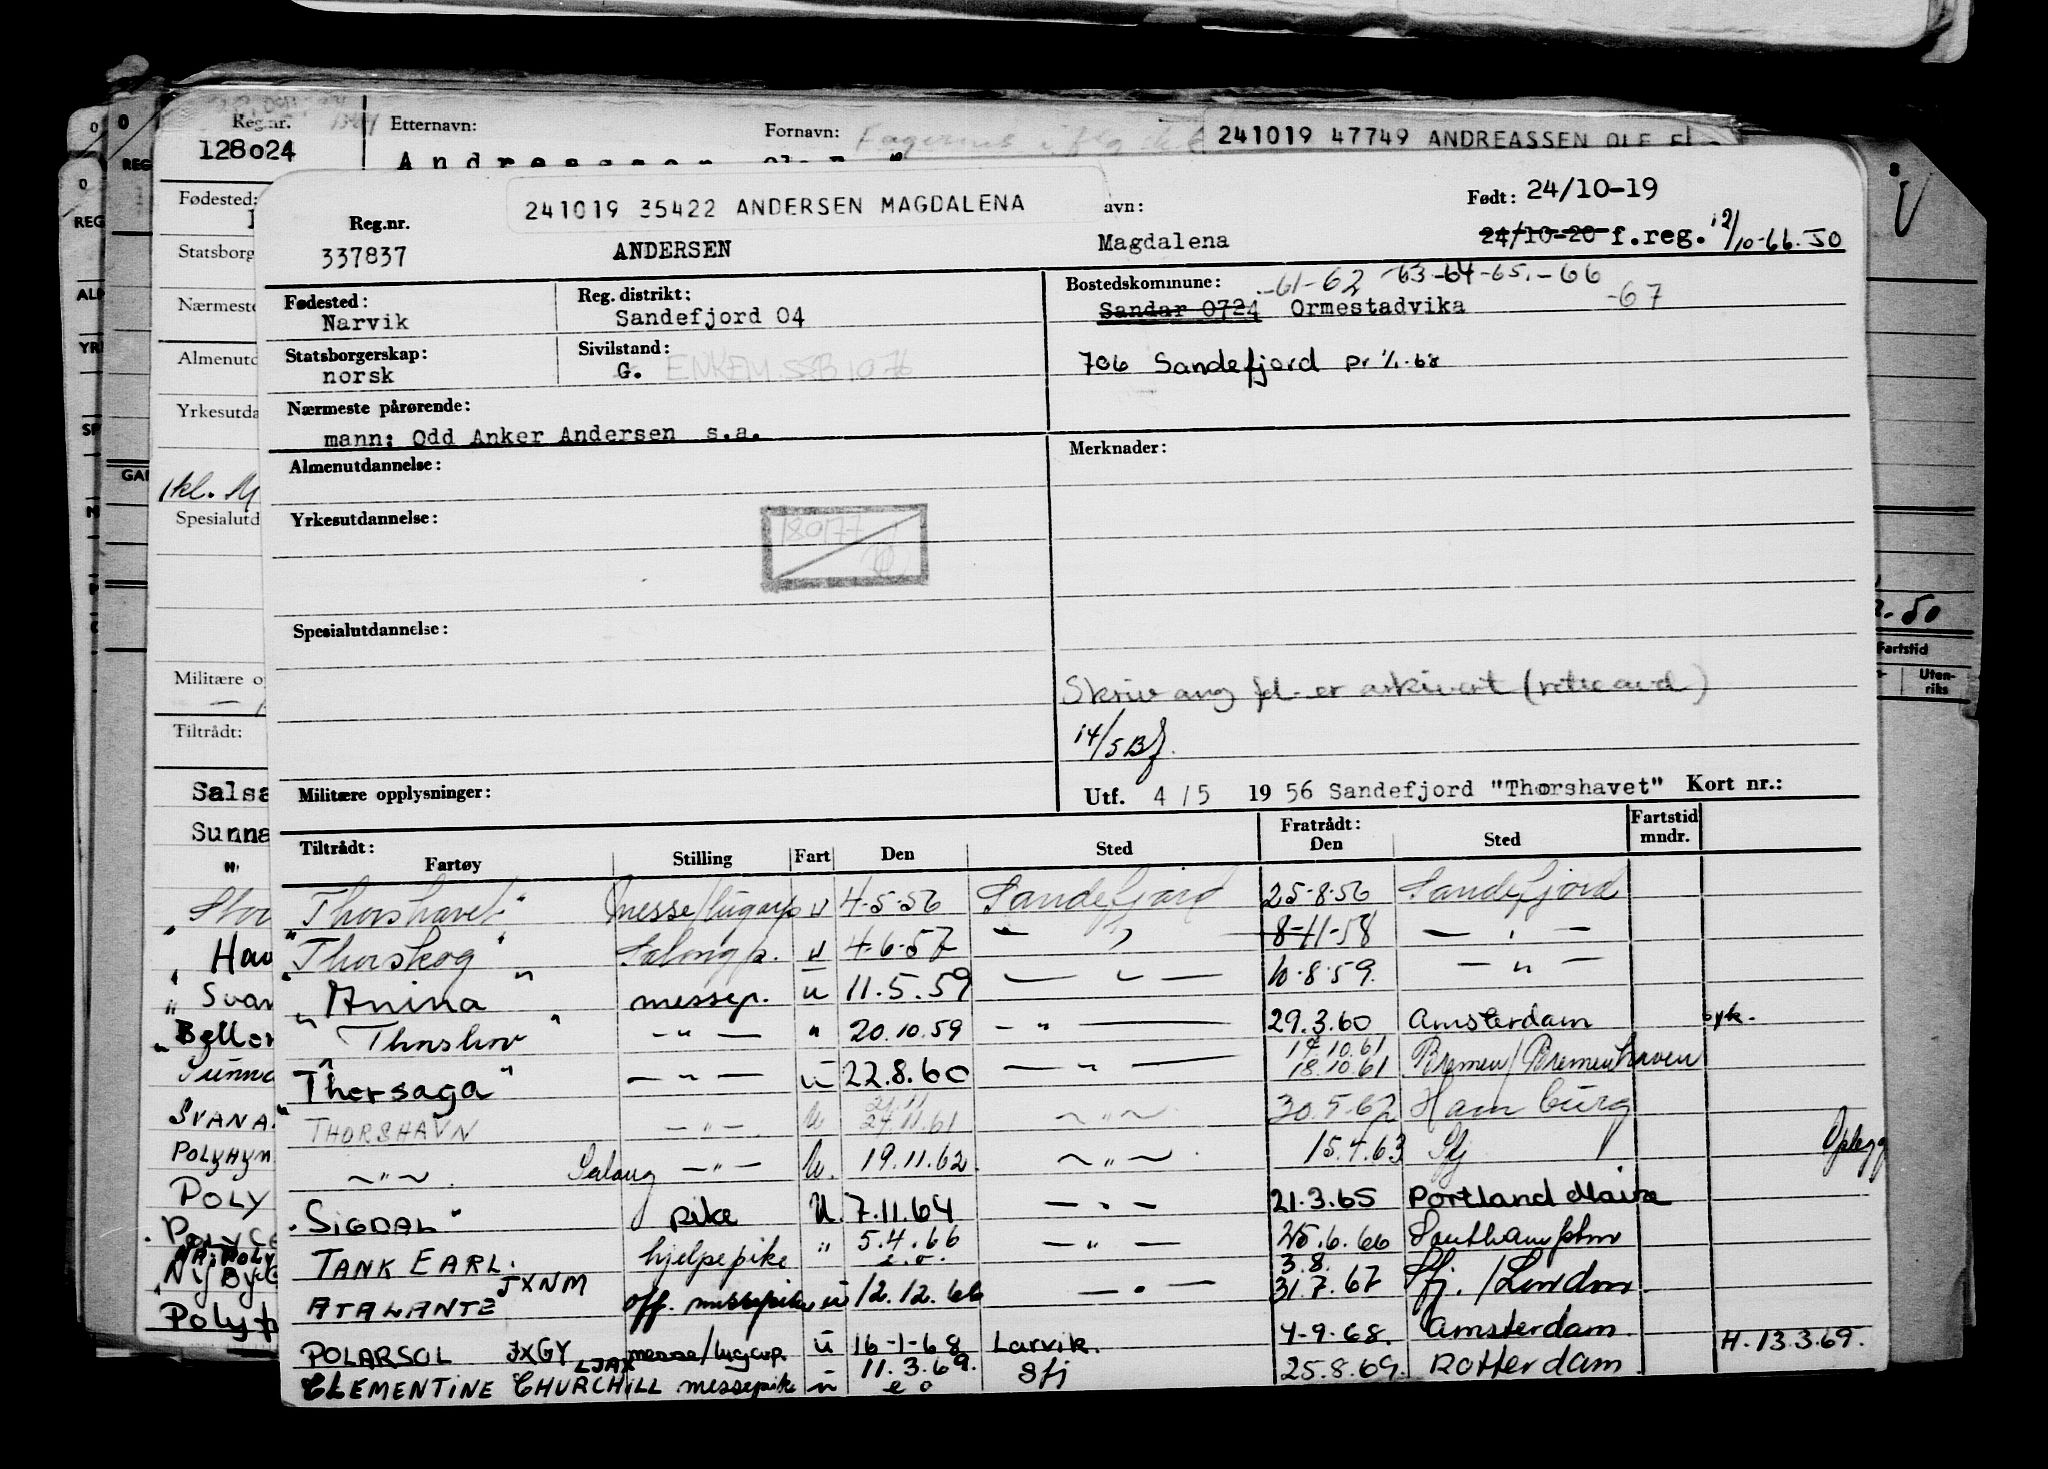 Reg.nr.
128024
Etternavn:
Fornavn:
241019 47749 ANDREASSEN OLE
Fødested:
Statsborg
Nærmeste
Almenutd
Yrkesutda
Spesialutd
Militære o
Tiltrådt:
Salsa
Sunna
Hav
Svan
Beller
Sunna
SVANA
POLYHYM
POLY
POLYCE
Fartstid
Uten-
riks
241019 35422 ANDERSEN MAGDALENA
avn:
Født: 24/10-19
Reg.nr.
337837
ANDERSEN
Magdalena
24/10-20 f.reg. 12/10-66. JO
Fødested:
Narvik
Reg. distrikt:
Sandefjord 04
Bostedskommune: -61-62 -63-64-65.-66
-67
Sandar 0724 Ormestadvika
Statsborgerskap:
norsk
Sivilstand:
G. ENKEM. SSB 1076
706 Sandefjord pr 1/1-68
Nærmeste pårørende:
mann: Odd Anker Andersen s.a.
Almenutdannelse:
Merknader:
Yrkesutdannelse:
180177
Spesialutdannelse:
Skriv ang fd. er arkivert (
14/5 Bf.
Militære opplysninger:
Utf. 4/5 1956 Sandefjord "Thorshavet" Kort nr.:
Tiltrådt:
Fartøy Stilling Fart Den Sted Fratrådt: Den Sted Fartstid mndr.
"Thorshavet" messe/lugarp u 4-5-56 Sandefjord 25-8-56 Sandefjord
"Thorskog" Salongp. u 4-6-57 — " — 8-11-58 — " —
"Anina" messep. u 11.5.59 — " — 10-8-59. — " —
"Thorshov" — " — " 20.10.59 — " — 29.3.60 Amsterdam syk.
"Thorsaga" — " — u 22.8.60 — " — 17.10.61 18.10.61 Bremen/Bremenhaven
THORSHAVN — " — u 21.11 24.11.61 — " — 30.5.62 Hamburg
— " — Salong — " — u. 19.11.62. — " — 15.4.63 Sfj Oplegg
"SIGDAL" pike u. 7.11.64 — " — 21.3.65 Portland Maine
TANK EARL. hjelpepike " 5.4.66 — " — 25.6.66 Southampton
ATALANTE JXNM off. messepike u 12.12.66 — " — 3.8. 31.7.67 Sfj. / London
POLARSOL JXGY messe/lugarp. u 16-1-68 Larvik. 4-9-68. Amsterdam
CLEMENTINE CHURCHILL LJAX messepike u 11.3.69. e o Sfj 25.8.69. Rotterdam H. 13.3.69.